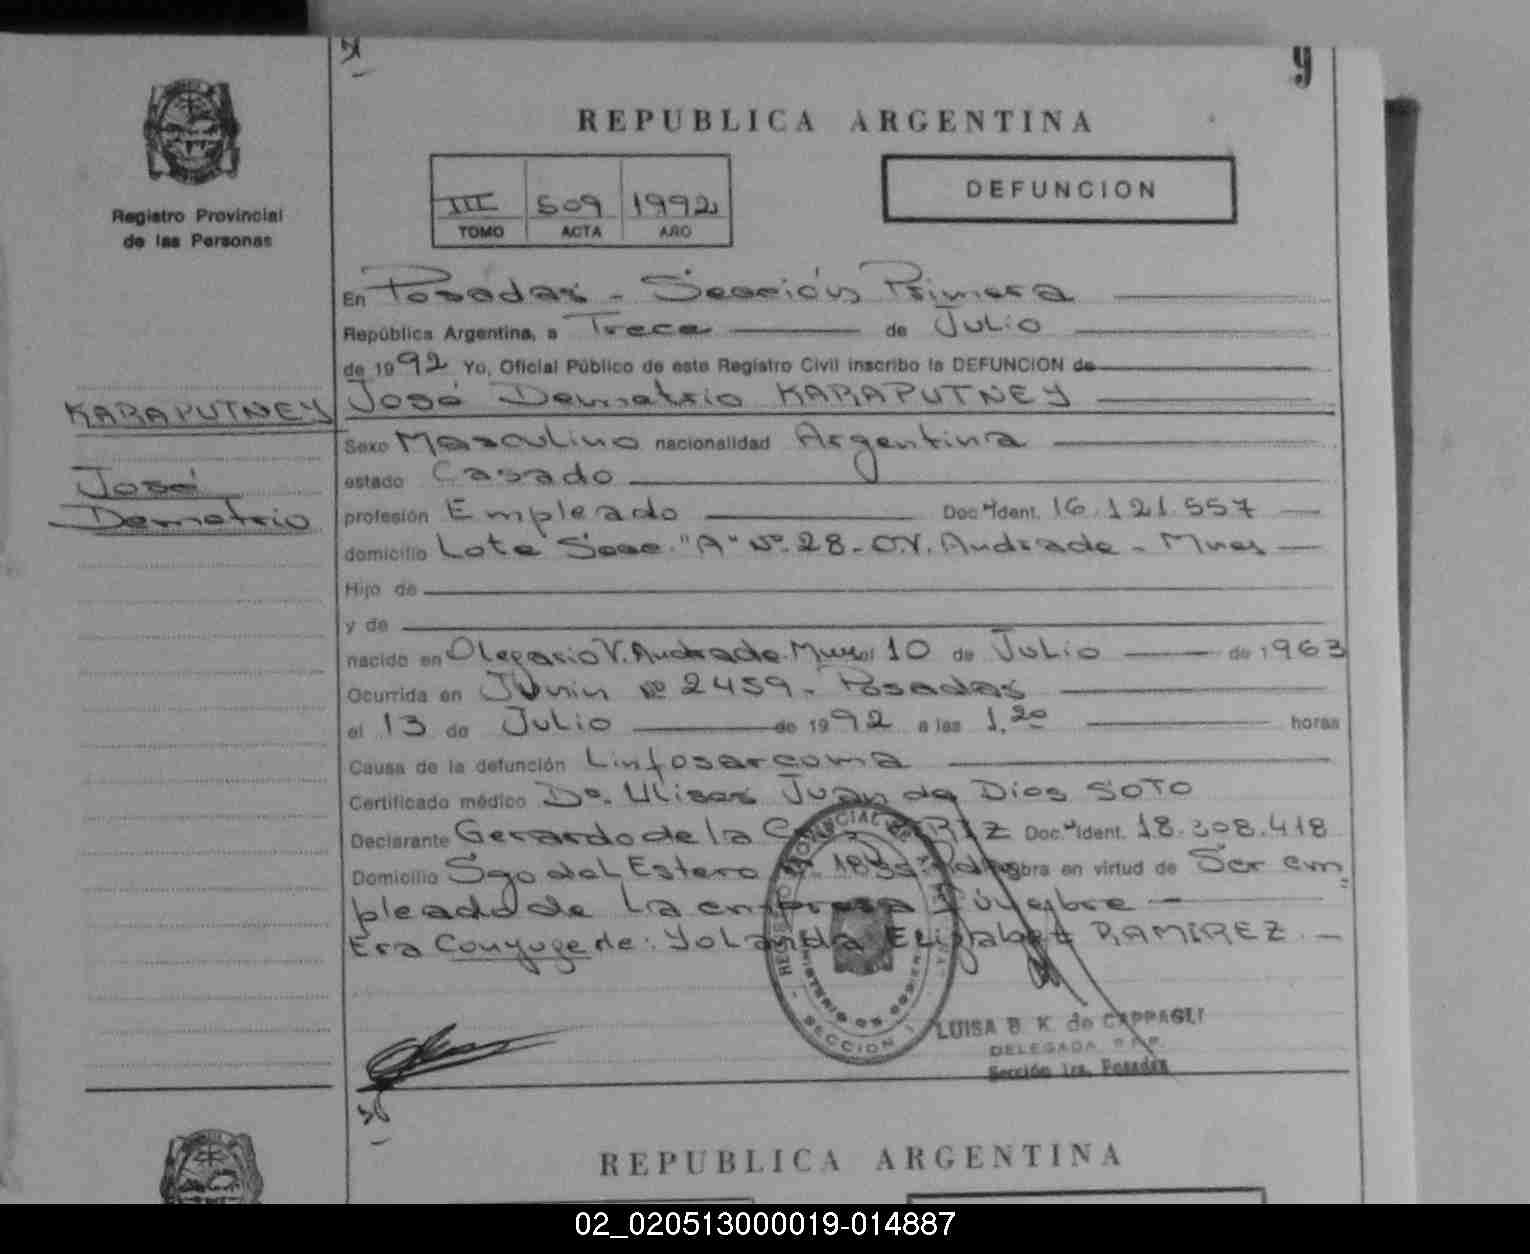 9
REPUBLICA ARGENTINA
Registro Provincial
de las Personas
III 509 1992
TOMO ACTA AÑO
DEFUNCION
En Posadas - Sección Primera
República Argentina, a Trece de Julio
de 1992 Yo, Oficial Público de este Registro Civil inscribo la DEFUNCION de
KARAPUTNEY
José Demetrio
José Demetrio KARAPUTNEY
Sexo Masculino nacionalidad Argentina
estado Casado
profesión Empleado Doc. Ident. 16.121.557
domicilio Lote Secc. "A" Nº 28 - O.V. Andrade - Mnes
Hijo de
y de
nacido en Olegario V. Andrade. Mnes el 10 de Julio de 1963
Ocurrida en Junin Nº 2459 - Posadas
el 13 de Julio de 1992 a las 1,20 horas
Causa de la defunción Linfosarcoma
Certificado médico Dr. Ulises Juan de Dios SOTO
Declarante Gerardo de la Doc. Ident. 18.308.418
Domicilio Sgo del Estero obra en virtud de Ser em
pleado de la empresa fúnebre -
Era Conyuge de: Yolanda Elizabet RAMIREZ. -
REGISTRO PROVINCIAL DE
MINISTERIO DE GOBIERNO
SECCION 1
LUISA B. K. de CAPPAGLI
DELEGADA R.P.P.
Sección 1ra. Posadas
REPUBLICA ARGENTINA
02_020513000019-014887